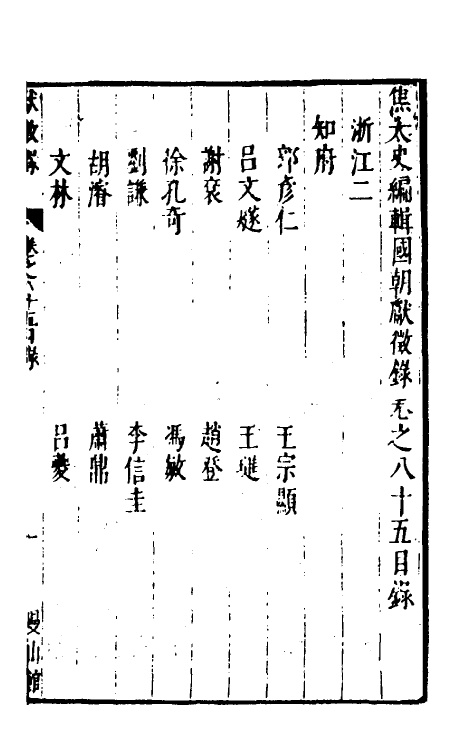 焦太史編輯國朝獻徵錄卷之八十五目錄
浙江二
知府
郭彥仁 王宗顯
呂文燧 王璡
謝袞 趙登
徐孔奇 馮敏
劉謙 李信圭
胡濬 蕭鼎
文林 呂夔
獻徵錄 卷之八十五目錄 一 曼山館